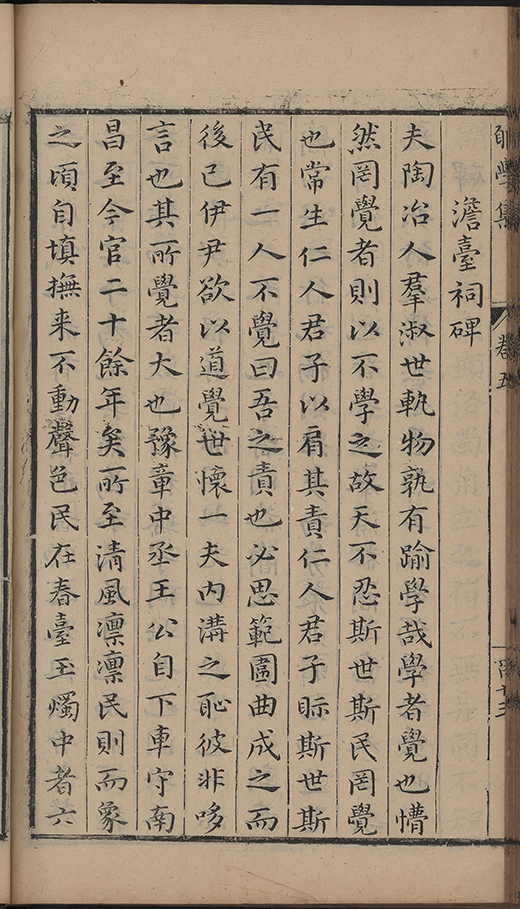 學集 卷五
澹臺祠碑
夫陶冶人羣淑世軌物孰有踰學哉學者覺也懵
然罔覺者則以不學之故天不忍斯世斯民罔覺
也常生仁人君子以肩其責仁人君子眎斯世斯
民有一人不覺曰吾之責也必思範圍曲成之而
後已伊尹欲以道覺世懷一夫内溝之恥彼非哆
言也其所覺者大也豫章中丞王公自下車守南
昌至今官二十餘年矣所至清風凛凛民則而象
之頃自填撫来不動聲色民在春臺玉燭中者六